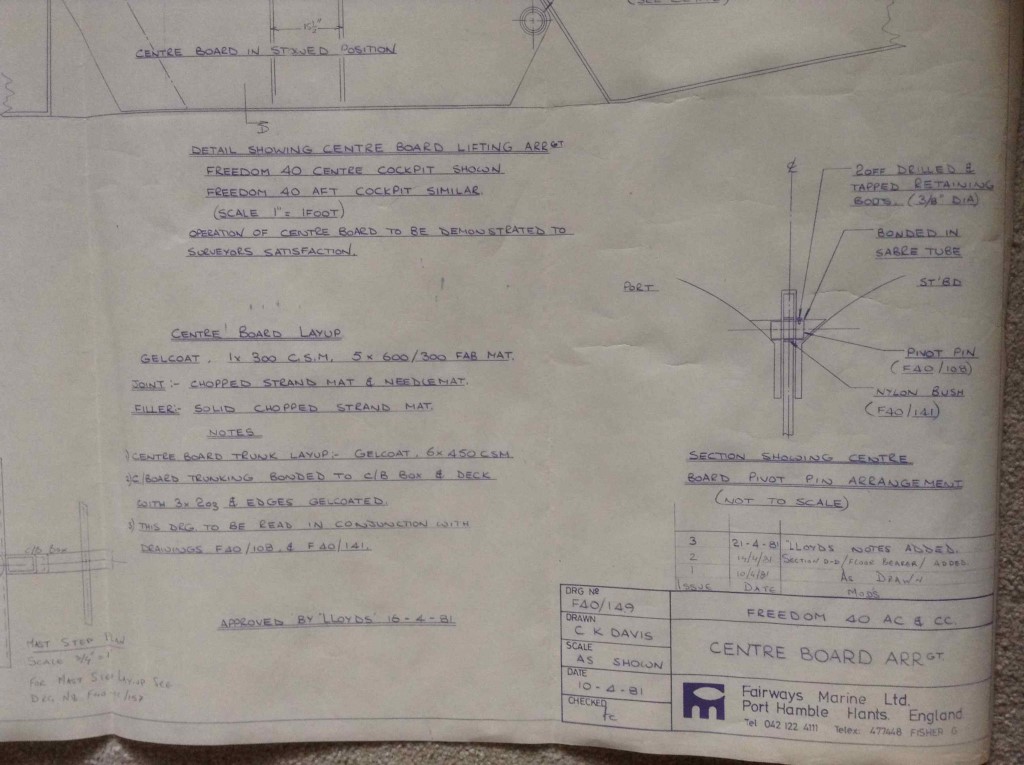 15½"
CENTRE BOARD IN STOWED POSITION
D
DETAIL SHOWING CENTRE BOARD LIFTING ARRGT
FREEDOM 40 CENTRE COCKPIT SHOWN
FREEDOM 40 AFT COCKPIT SIMILAR.
(SCALE 1" = 1FOOT)
OPERATION OF CENTRE BOARD TO BE DEMONSTRATED TO
SURVEYORS SATISFACTION.
CENTRE BOARD LAYUP
GELCOAT, 1x 300 C.S.M, 5 x 600/300 FAB MAT.
JOINT:- CHOPPED STRAND MAT & NEEDLEMAT.
FILLER:- SOLID CHOPPED STRAND MAT.
NOTES
1) CENTRE BOARD TRUNK LAYUP:- GELCOAT, 6x 450 CSM
2) C/BOARD TRUNKING BONDED TO C/B BOX & DECK
WITH 3x 2oz & EDGES GELCOATED.
3) THIS DRG TO BE READ IN CONJUNCTION WITH
DRAWINGS F40/108, & F40/141.
APPROVED BY "LLOYDS" 16-4-81
C/B BOX
MAST STEP PLAN
SCALE 3/4" = 1'
FOR MAST STEP LAYUP SEE
DRG. No.
℄
2OFF DRILLED &
TAPPED RETAINING
BOLTS. (3/8" DIA)
BONDED IN
SABRE TUBE
PORT
ST'BD
PIVOT PIN
(F40/108)
NYLON BUSH
(F40/141)
SECTION SHOWING CENTRE
BOARD PIVOT PIN ARRANGEMENT
(NOT TO SCALE)
3 21-4-81 "LLOYDS NOTES ADDED.
2 14/4/81 SECTION D-D/FLOOR BEARER/ ADDED.
1 10/4/81 AS DRAWN
ISSUE DATE MODS
DRG No
F40/149
DRAWN
C K DAVIS
SCALE
AS SHOWN
DATE
10-4-81
CHECKED
FREEDOM 40 AC & CC.
CENTRE BOARD ARRGT.
Fairways Marine Ltd.
Port Hamble Hants. England
Tel 042 122 4111 Telex: 477448 FISHER G